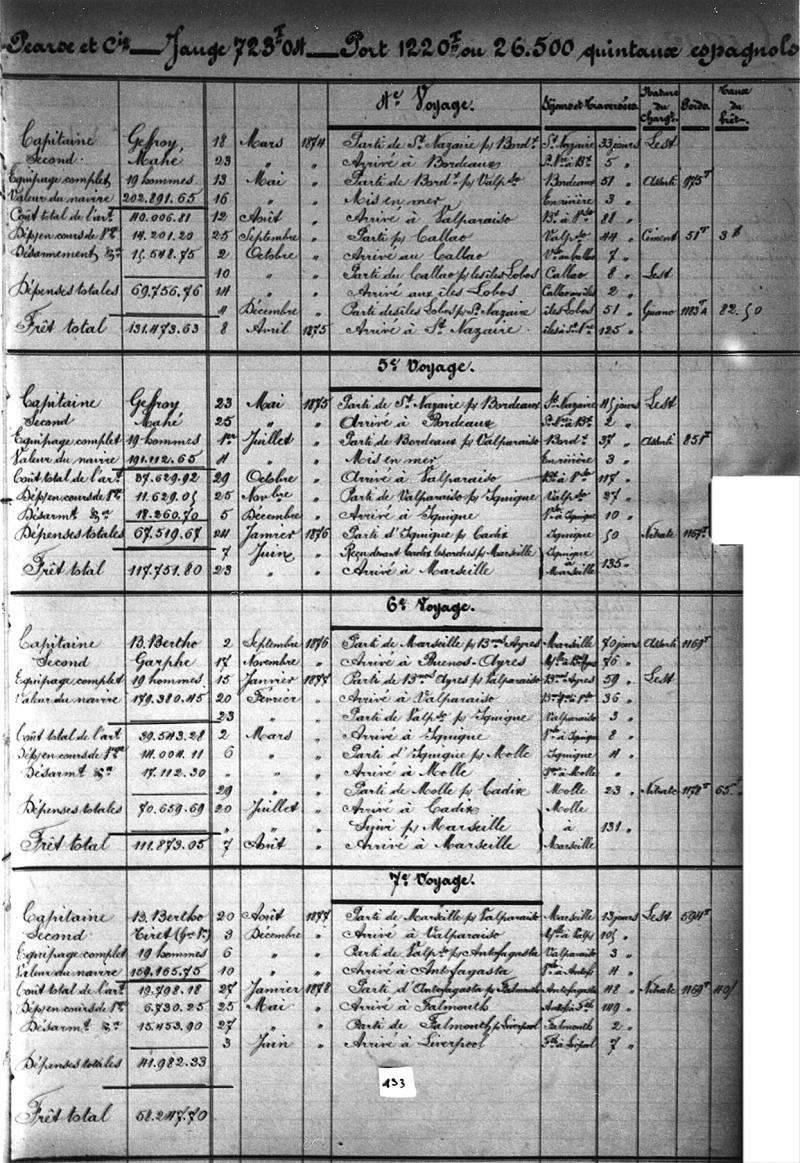 Pearse et Cie — Jauge 723T04 — Port 1220T ou 26.500 quintaux espagnols
4e Voyage. Séjours et Traversées. Nature du Chargt. Poids. Taux du frêt.
Capitaine Geffroy, 18 Mars 1874 Parti de St. Nazaire p/ Bordx St. Nazaire 33 jours Lest
Second. Mahé 23 " " Arrivé à Bordeaux 5 "
Equipage complet 19 hommes 13 Mai " Parti de Bordx p/ Valpso Bordeaux 51 " Assorti 975T
Valeur du navire 202.891.65 16 " " Mis en mer En rivière 3 "
Coût total de l'art 40.006.81 12 Août " Arrivé à Valparaiso 88 "
Dép/en cours de Vge 14.201.20 25 Septembre " Parti p/ Callao Valpso 44 " Ciment 51T 3
Désarmement 15.548.75 2 Octobre " Arrivé au Callao 7 "
10 " " Parti du Callao p/ les iles Lobos Callao 8 " Lest
Dépenses totales 69.756.76 14 " " Arrivé aux iles Lobos 2 "
4 Décembre " Parti des iles Lobos p/ St. Nazaire iles Lobos 51 " Guano 82.50
Frêt total 131.473.63 8 Avril 1875 Arrivé à St. Nazaire 125 "
5e Voyage.
Capitaine Geffroy 23 Mai 1875 Parti de St. Nazaire p/ Bordeaux St. Nazaire 45 jours Lest
Second Mahé 25 " " Arrivé à Bordeaux 2 "
Equipage complet 19 hommes 1er Juillet " Parti de Bordeaux p/ Valparaiso Bordx 37 " Assorti 851T
Valeur du navire 191.112.65 4 " " Mis en mer En rivière 3 "
Coût total de l'art 37.629.92 29 Octobre " Arrivé à Valparaiso 117 "
Dép/en cours de Vge 11.629.05 25 Novbre " Parti de Valparaiso p/ Iquique Valpso 27 "
Désarmt 18.260.70 5 Décembre " Arrivé à Iquique 10 "
Dépenses totales 67.519.67 24 Janvier 1876 Parti d'Iquique p/ Cadix Iquique 50 Nitrate 1167T
7 Juin " Reçu devant Cadix les ordres p/ Marseille Iquique
Frêt total 117.751.80 23 " " Arrivé à Marseille à Marseille 135 "
6e Voyage.
Capitaine B. Bertho 2 Septembre 1876 Parti de Marseille p/ Bnos Ayres Marseille 70 jours Assorti 1169T
Second Garphe 17 Novembre " Arrivé à Buenos-Ayres 76 "
Equipage complet 19 hommes 15 Janvier 1877 Parti de Bnos Ayres p/ Valparaiso Bnos Ayres 59 " Lest
Valeur du navire 179.380.45 20 Février " Arrivé à Valparaiso 36 "
23 " " Parti de Valpso p/ Iquique Valparaiso 3 "
Coût total de l'art 39.543.28 2 Mars " Arrivé à Iquique 8 "
Dép/en cours de Vge 14.004.11 6 " " Parti d'Iquique p/ Molle Iquique 4 "
Désarmt 17.112.30 " " " Arrivé à Molle "
29 " " Parti de Molle p/ Cadix Molle 23 " Nitrate 1178T 65
Dépenses totales 70.659.69 20 Juillet " Arrivé à Cadix Molle
" " " Suivi p/ Marseille à 131 "
Frêt total 111.873.05 7 Août " Arrivé à Marseille Marseille
7e Voyage.
Capitaine B. Bertho 20 Août 1877 Parti de Marseille p/ Valparaiso Marseille 13 jours Lest 594T
Second Tiret 3 Décembre " Arrivé à Valparaiso 105 "
Equipage complet 19 hommes 6 " " Parti de Valpso p/ Antofagasta Valparaiso 3 "
Valeur du navire 169.165.75 10 " " Arrivé à Antofagasta 4 "
Coût total de l'art 19.798.18 27 Janvier 1878 Parti d'Antofagasta p/ Falmouth Antofagasta 48 " Nitrate 1169T 40/
Dép/en cours de Vge 6.730.25 25 Mai " Arrivé à Falmouth 119 "
Désarmt 15.453.90 27 " " Parti de Falmouth p/ Liverpool Falmouth 2 "
3 Juin " Arrivé à Liverpool 7 "
Dépenses totales 41.982.33
133
Frêt total 58.247.70